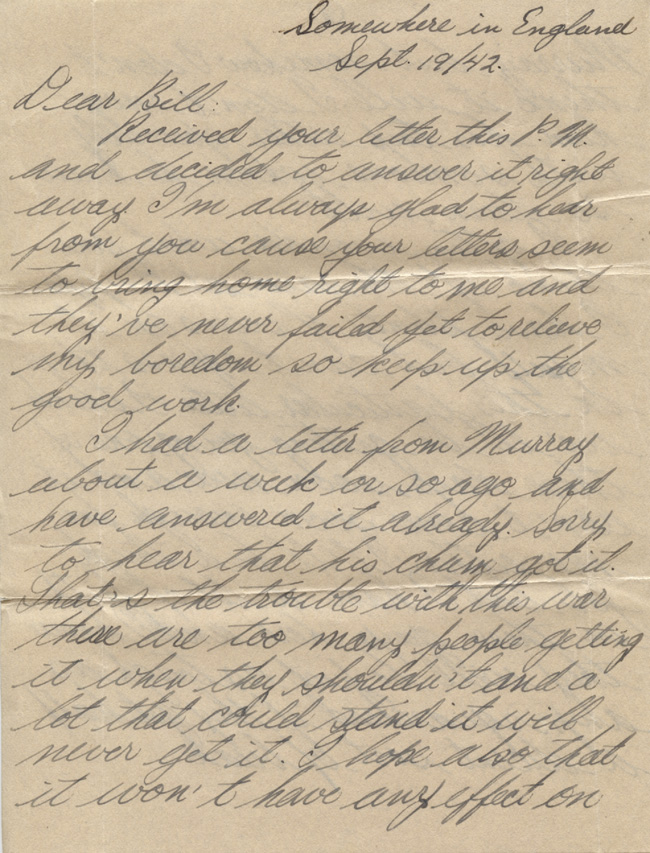 Somewhere in England
Sept. 19/42.
Dear Bill:
Received your letter this P.M.
and decided to answer it right
away. I'm always glad to hear
from you cause your letters seem
to bring home right to me and
they've never failed yet to relieve
my boredom so keep up the
good work.
I had a letter from Murray
about a week or so ago and
have answered it already. Sorry
to hear that his chum got it.
That's the trouble with this war
there are too many people getting
it when they shouldn't and a
lot that could stand it will
never get it. I hope also that
it won't have any effect on